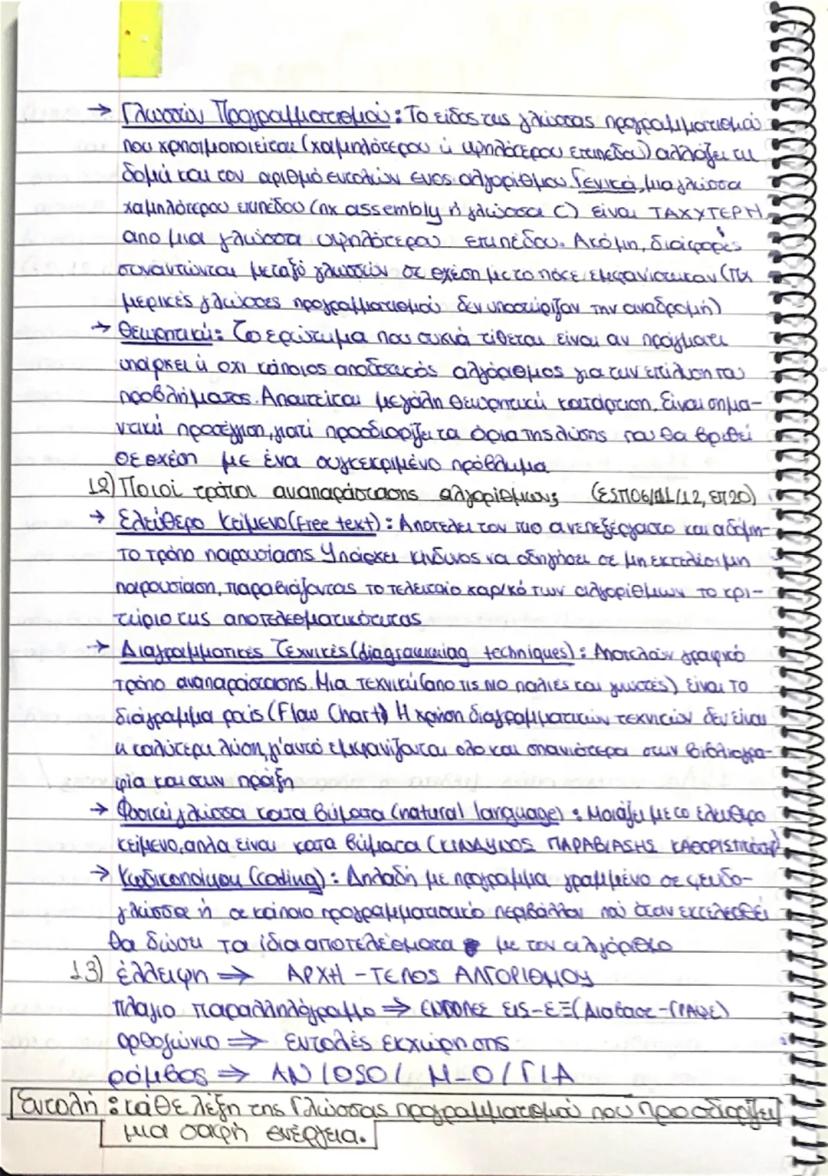 → Γλωσσών Προγραμματισμού: Το είδος της γλώσσας προγραμματισμού
που χρησιμοποιείται (χαμηλότερου ή υψηλότερου επιπέδου) αλλάζει τη
δομή και τον αριθμό εντολών ενός αλγορίθμου. Γενικά, μια γλώσσα
χαμηλότερου επιπέδου (πχ assembly ή γλώσσα C) είναι ΤΑΧΥΤΕΡΗ
απο μια γλώσσα υψηλότερου επιπέδου. Ακόμη, διαφορές
συναντώνται μεταξύ γλωσσών σε σχέση με το πότε εμφανίστηκαν (πχ
μερικές γλώσσες προγραμματισμού δεν υποστήριζαν την αναδρομή)
→ Θεωρητική: Το ερώτημα που συχνά τίθεται είναι αν πράγματι
υπάρχει ή οχι κάποιος αποδοτικός αλγόριθμος για την επίλυση του
προβλήματος. Απαιτείται μεγάλη θεωρητική κατάρτιση. Είναι σημα-
ντική προσέγγιση, γιατί προσδιορίζει τα όρια της λύσης που θα βρεθεί
σε σχέση με ένα συγκεκριμένο πρόβλημα
12) Ποιοί τρόποι αναπαράστασης αλγορίθμους (ΕΣΠ06/Δ1/12, ΕΠ20)
→ Ελεύθερο Κείμενο (Free text): Αποτελεί τον πιο ανεπεξέργαστο και αδόμη-
το τρόπο παρουσίασης. Υπάρχει κίνδυνος να οδηγήσει σε μη εκτελέσιμη
παρουσίαση, παραβιάζοντας το τελευταίο χαρ/κό των αλγορίθμων το κρι-
τήριο της αποτελεσματικότητας
→ Διαγραμματικές Τεχνικές (diagramming techniques): Αποτελούν γραφικό
τρόπο αναπαράστασης. Μια τεχνική (απο τις πιο παλιές και γνωστές) είναι το
διάγραμμα ροής (Flow Chart). Η χρήση διαγραμματικών τεχνικών δεν είναι
η καλύτερη λύση, γι'αυτό εμφανίζονται ολο και σπανιότερα στην βιβλιογρα-
φία και στην πράξη
→ Φυσική γλώσσα κατα βήματα (natural language): Μοιάζει με το ελεύθερο
κείμενο, απλα είναι κατα βήματα (ΚΙΝΔΥΝΟΣ ΠΑΡΑΒΙΑΣΗΣ ΚΑΘΟΡΙΣΤΙΚΟΤΗΤΑΣ)
→ Κωδικοποίηση (coding): Δηλαδή με πρόγραμμα γραμμένο σε ψευδο-
γλώσσα ή σε κάποιο προγραμματιστικό περιβάλλον που όταν εκτελεσθεί
θα δώσει τα ίδια αποτελέσματα με τον αλγόριθμο
13) έλλειψη ⇒ ΑΡΧΗ - ΤΕΛΟΣ ΑΛΓΟΡΙΘΜΟΥ
πλάγιο παραλληλόγραμο ⇒ ΕΝΤΟΛΕΣ ΕΙΣ-ΕΞ (Διάβασε-ΓΡΑΨΕ)
ορθογώνιο ⇒ εντολές εκχώρησης
ρόμβος ⇒ ΑΝ / ΟΣΟ / Μ-Ο / ΓΙΑ
Εντολή: κάθε λέξη της Γλώσσας προγραμματισμού που προσδιορίζει
μια σαφή ενέργεια.